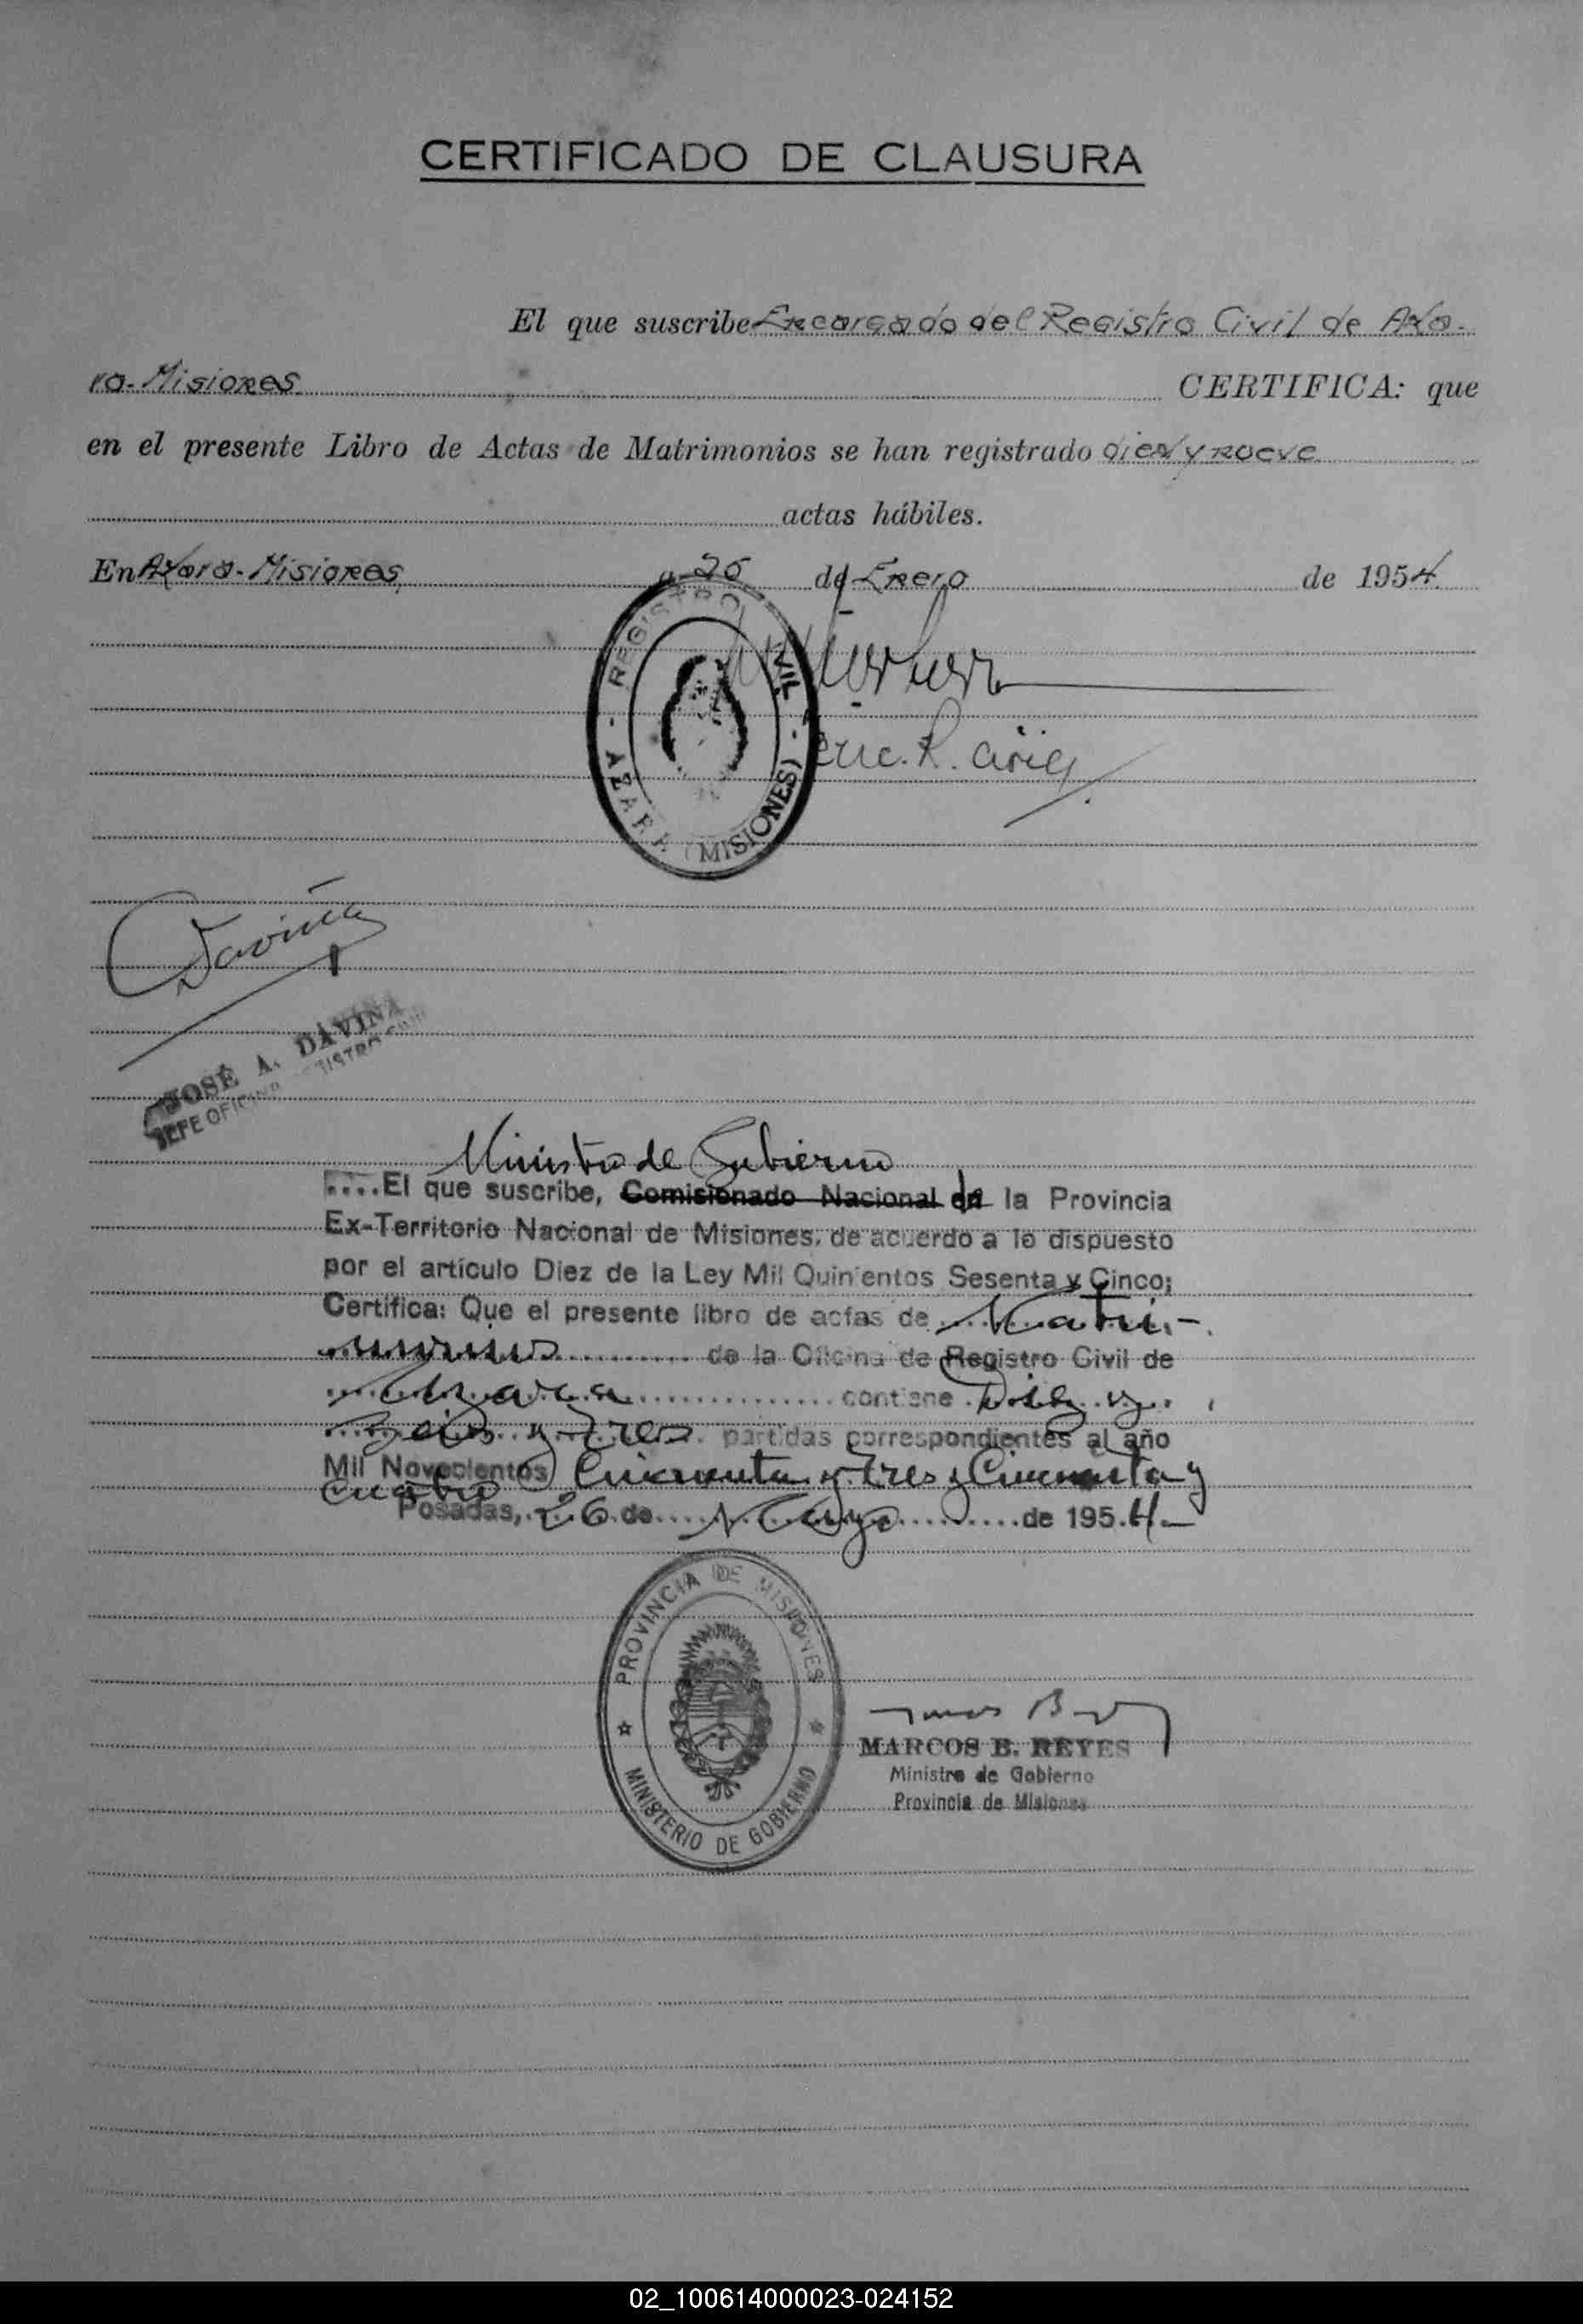 CERTIFICADO DE CLAUSURA
El que suscribe Encargado del Registro Civil de Aza-
ra-Misiones CERTIFICA: que
en el presente Libro de Actas de Matrimonios se han registrado diez y nueve
actas hábiles.
En Azara-Misiones a 26 de Enero de 1954
REGISTRO CIVIL - AZARA (MISIONES) -
Enc. R. Civil
Daviña
JOSÉ A. DAVIÑA
JEFE OFICINA REGISTRO CIVIL
Ministro de Gobierno
....El que suscribe, Comisionado Nacional de la Provincia
Ex-Territorio Nacional de Misiones, de acuerdo a lo dispuesto
por el artículo Diez de la Ley Mil Quinientos Sesenta y Cinco;
Certifica: Que el presente libro de actas de Matri-
monios de la Oficina de Registro Civil de
Azara contiene Diez y
Seis y Tres partidas correspondientes al año
Mil Novecientos Cincuenta y Tres y Cincuenta y
cuatro
Posadas, 26 de Mayo de 1954.-
PROVINCIA DE MISIONES
MINISTERIO DE GOBIERNO
MARCOS B. REYES
Ministro de Gobierno
Provincia de Misiones
02_100614000023-024152